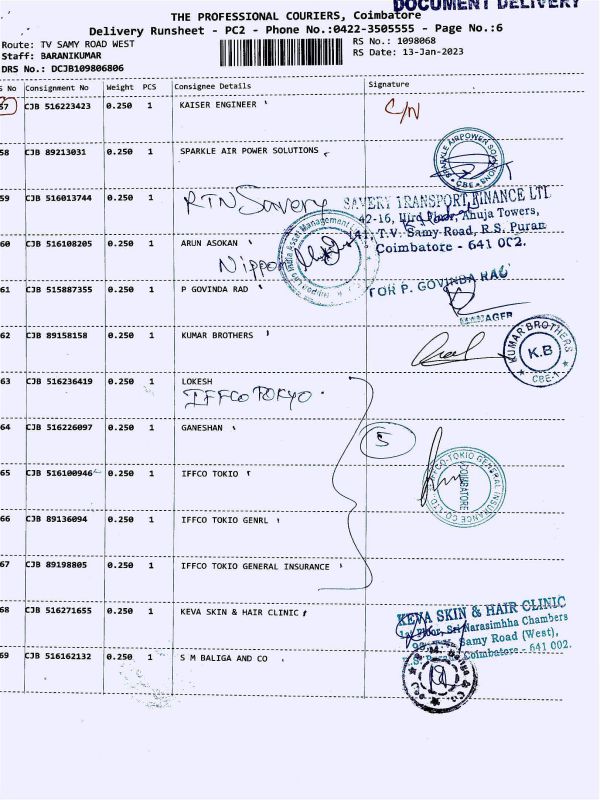 DOCUMENT DELIVERY
THE PROFESSIONAL COURIERS, Coimbatore
Delivery Runsheet - PC2 - Phone No.:0422-3505555 - Page No.:6
Route: TV SAMY ROAD WEST
RS No.: 1098068
Staff: BARANIKUMAR
RS Date: 13-Jan-2023
DRS No.: DCJB109806806
S No Consignment No Weight PCS Consignee Details Signature
57 CJB 516223423 0.250 1 KAISER ENGINEER
C/N
58 CJB 89213031 0.250 1 SPARKLE AIR POWER SOLUTIONS
SPARKLE AIRPOWER SOLUTIONS
CBE
59 CJB 516013744 0.250 1
RTN Savery
SAVERY TRANSPORT FINANCE LTD
42-16, Third Floor, Ahuja Towers,
141, T.V. Samy Road, R.S. Puram
Coimbatore - 641 002.
60 CJB 516108205 0.250 1 ARUN ASOKAN
Nippon
Nippon Life India Asset Management
61 CJB 515887355 0.250 1 P GOVINDA RAD
FOR P. GOVINDA RAO
MANAGER
62 CJB 89158158 0.250 1 KUMAR BROTHERS
KUMAR BROTHERS
K.B
CBE-1
63 CJB 516236419 0.250 1 LOKESH
IFFCO TOKYO
64 CJB 516226097 0.250 1 GANESHAN
5
65 CJB 516100946 0.250 1 IFFCO TOKIO
IFFCO TOKIO GENERAL INSURANCE CO. LTD.
COIMBATORE
66 CJB 89136094 0.250 1 IFFCO TOKIO GENRL
67 CJB 89198805 0.250 1 IFFCO TOKIO GENERAL INSURANCE
68 CJB 516271655 0.250 1 KEVA SKIN & HAIR CLINIC
KEVA SKIN & HAIR CLINIC
1st Floor, Sri Narasimhha Chambers
Samy Road (West),
Coimbatore - 641 002.
69 CJB 516162132 0.250 1 S M BALIGA AND CO